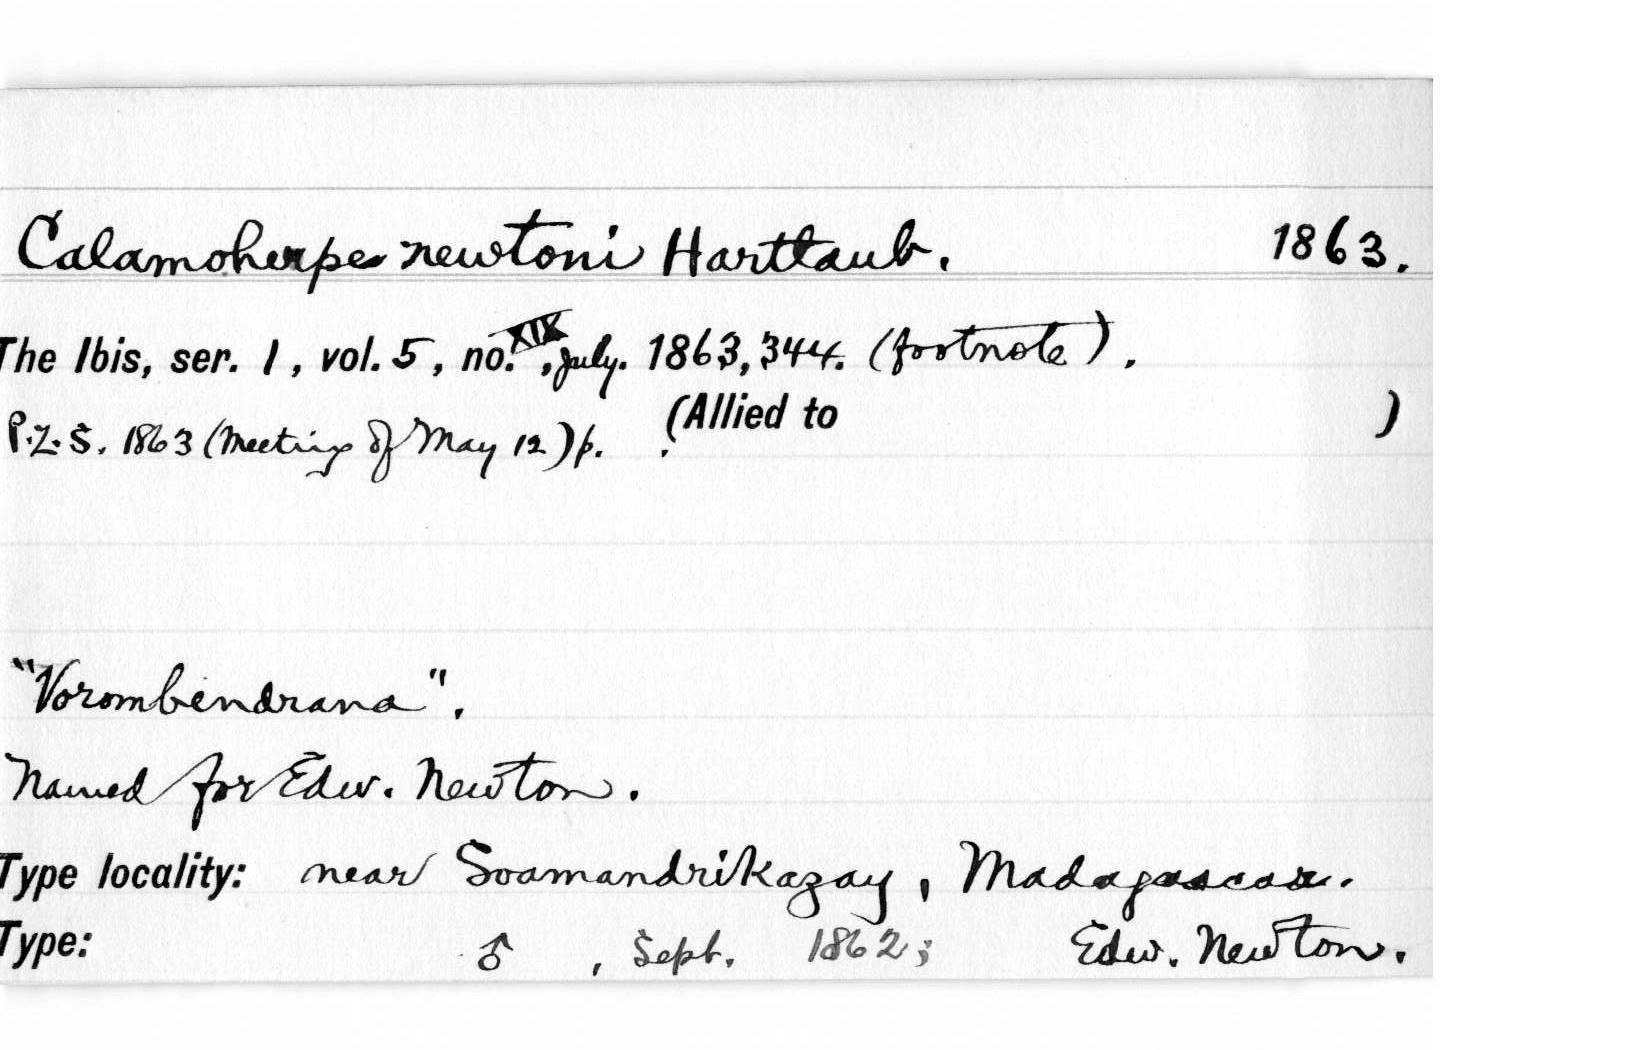 Calamoherpe newtoni Hartlaub. 1863.
The Ibis, ser. 1, vol. 5, no. XIX, July. 1863, 344. (footnote).
(Allied to )
P.Z.S. 1863 (Meeting of May 12) p. .
"Vorombendrana".
Named for Edw. Newton.
Type locality: near Soamandrikazay, Madagascar.
Type: ♂ , Sept. 1862; Edw. Newton.